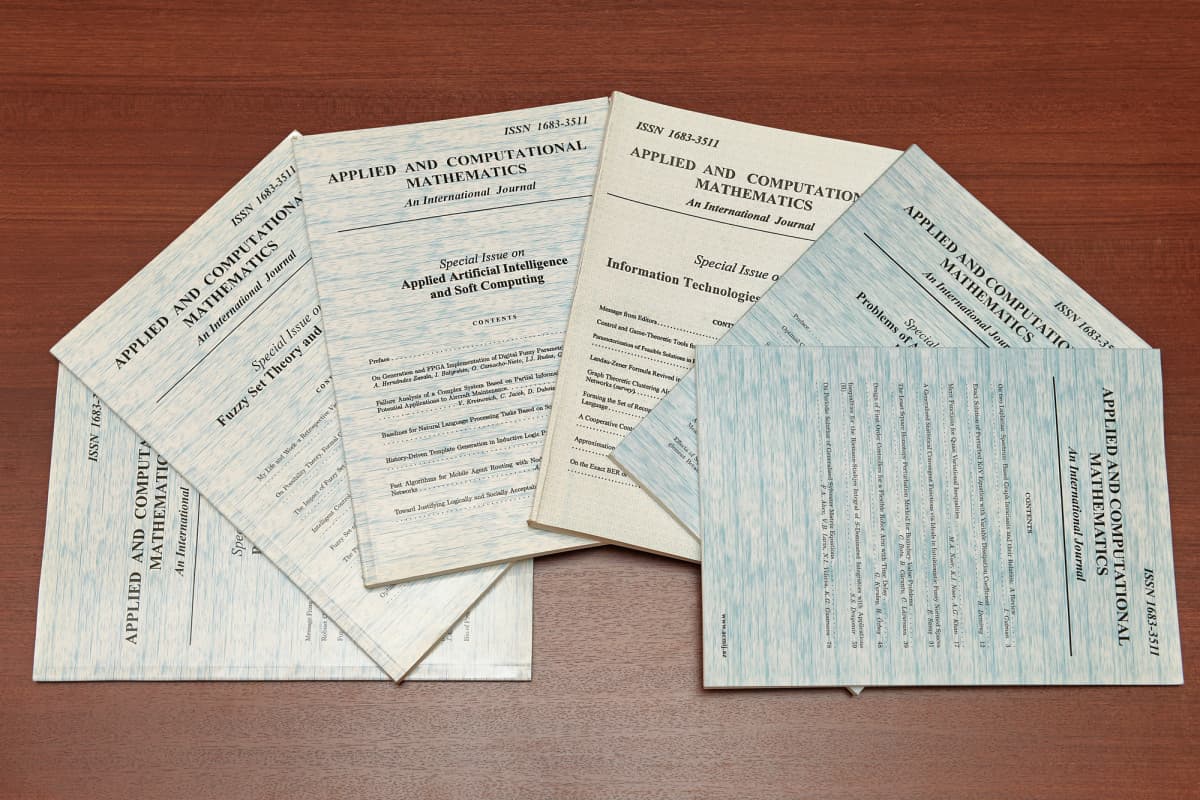 ISSN 1683-3511
APPLIED AND COMPUTAT
MATHEMATIC
An International
Spec
ISSN 1683-3511
APPLIED AND COMPUTATIONA
MATHEMATICS
An International Journal
Special Issue on
Fuzzy Set Theory and
CON
My Life and Work: a Retrospective V
On Possibility Theory, Formal
The Impact of Fuzzy Se
ISSN 1683-3511
APPLIED AND COMPUTATIONAL
MATHEMATICS
An International Journal
Special Issue on
Applied Artificial Intelligence
and Soft Computing
CONTENTS
Preface
On Generation and FPGA Implementation of Digital Fuzzy Parame
A. Hernández Zavala, I. Batyrshin, O. Camacho-Nieto, I.J. Rudas,
Failure Analysis of a Complex System Based on Partial Inform
Potential Applications to Aircraft Maintenance V. Kreinovich, C. Jacob, D. Dubois
Baselines for Natural Language Processing Tasks Based on So
History-Driven Template Generation in Inductive Logic P
Fast Algorithms for Mobile Agent Routing with Nod
Networks
Toward Justifying Logically and Socially Acceptab
ISSN 1683-3511
APPLIED AND COMPUTATION
MATHEMATICS
An International Journal
Special Issue o
Information Technologies
CONT
Message from Editors
Control and Game-Theoretic Tools f
Parametrization of Feasible Solutions in
Landau-Zener Formula Revived in
Graph Theoretic Clustering Al
Networks (survey)
Forming the Set of Reco
Language
A Cooperative Co
Approximation
On the Exact BER o
ISSN 1683-3511
APPLIED AND COMPUTATIO
MATHEMATICS
An International Jour
Special
Problems of
Preface
ISSN 1683-3511
APPLIED AND COMPUTATIONAL
MATHEMATICS
An International Journal
CONTENTS
On two Laplacian Spectrum Based Graph Invariants and their Relation: A Review I. Gutman 3
Exact Solution of Perturbed KdV Equation with Variable Dissipation Coefficient H. Demiray 12
Merit Functions for Quasi Variational Inequalities M.A. Noor, K.I. Noor, A.G. Khan 17
A Generalized Statistical Convergence via Ideals in Intuitionistic Fuzzy Normed Spaces E. Savaş 31
The Least Square Homotopy Perturbation Method for Boundary Value Problems C. Bota, B. Căruntu, C. Lăzureanu 39
Design of First Order Controllers for a Flexible Robot Arm with Time Delay G. Kyrulay, H. Özbay 48
Inequalities for the Riemann-Stieltjes Integral of S-Dominated Integrators with Applications
(II) S.S. Dragomir 59
On Periodic Solution of Generalized Sylvester Matrix Equations
F.A. Aliev, V.B. Larin, N.I. Velieva, K.G. Gasimova 78
www.acmij.az